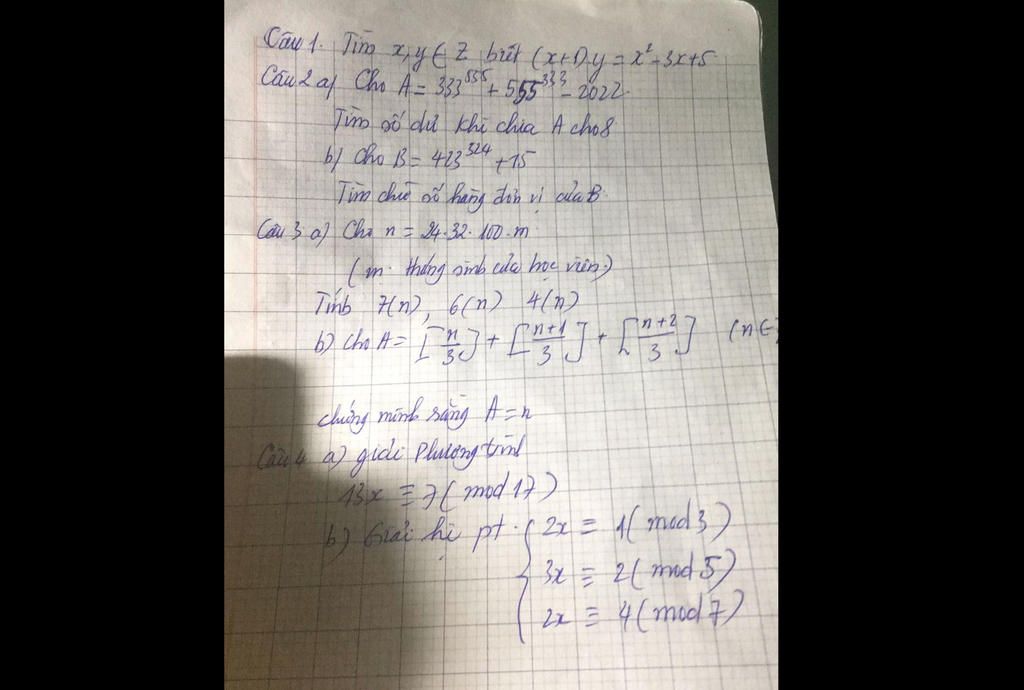 Câu 1. Tìm x, y ∈ Z biết (x+1)y = x² - 3x + 5
Câu 2 a) Cho A = 333⁵⁵⁵ + 555³³³ - 2022.
Tìm số dư khi chia A cho 8
b) Cho B = 423³²⁴ + 15
Tìm chữ số hàng đơn vị của B.
Câu 3 a) Cho n = 24.32.100.m
(m: tháng sinh của học viên)
Tính 7(n), 6(n) 4(n)
b) Cho A = [n/3] + [(n+1)/3] + [(n+2)/3] (n ∈
chứng minh rằng A = n
Câu 4 a) giải Phương trình
13x ≡ 7 (mod 17)
b) Giải hệ pt. { 2x ≡ 1 (mod 3)
3x ≡ 2 (mod 5)
2x ≡ 4 (mod 7)